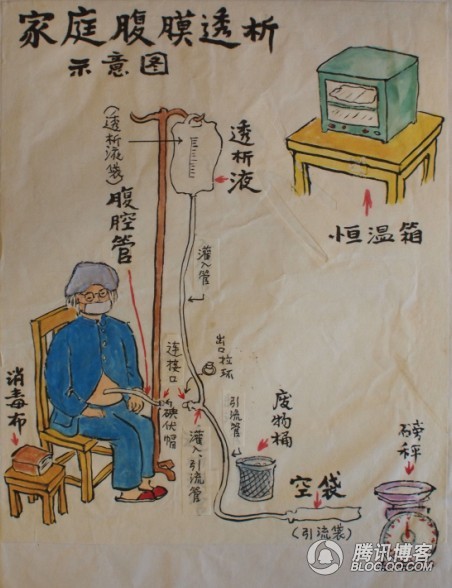 家庭腹膜透析
示意图
(透析液袋)
透析液
腹腔管
恒温箱
灌入管
连接口
出口拉环
消毒布
碘伏帽
灌入、引流管
引流管
废物桶
空袋
(引流袋)
磅秤
腾讯博客
BLOG.QQ.COM